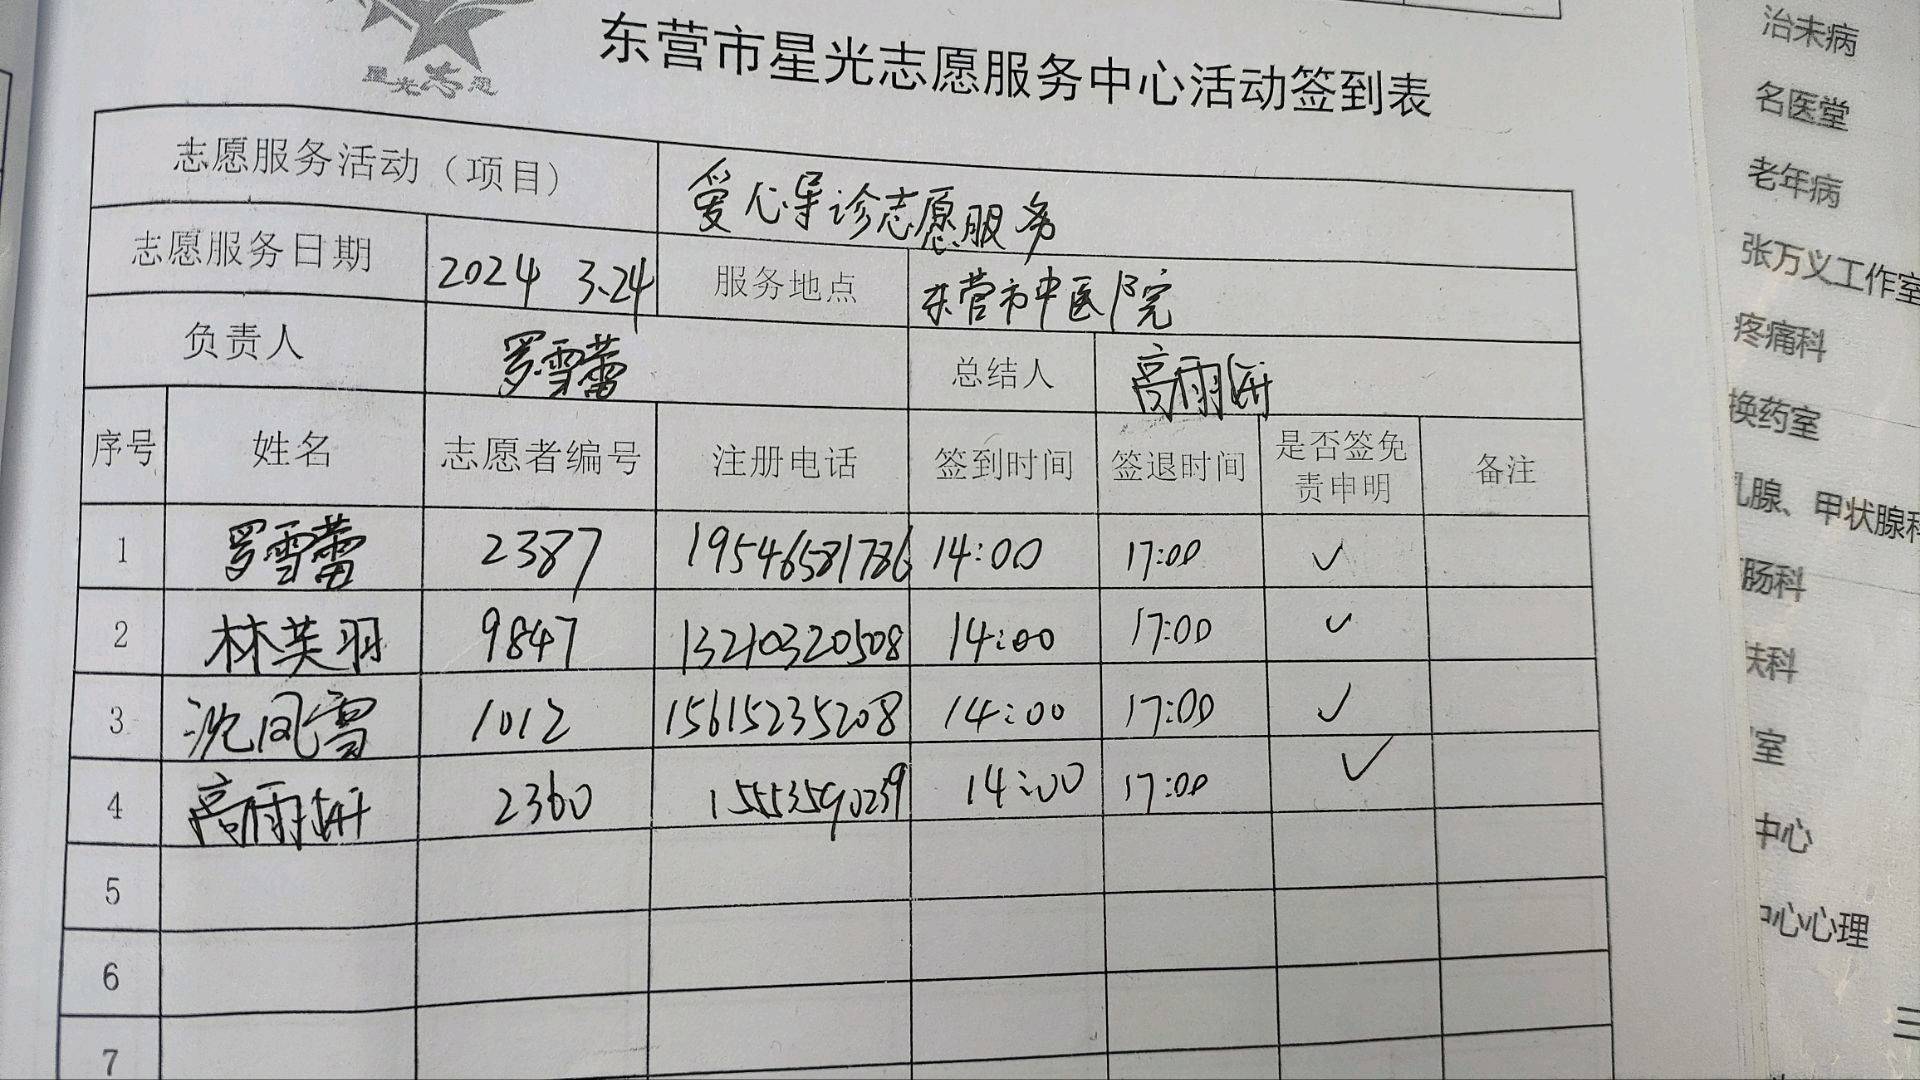 星光志愿
东营市星光志愿服务中心活动签到表
志愿服务活动（项目） 爱心导诊志愿服务
志愿服务日期 2024 3.24 服务地点 东营市中医院
负责人 罗雪蕾 总结人 高雨妍
序号 姓名 志愿者编号 注册电话 签到时间 签退时间 是否签免责申明 备注
1 罗雪蕾 2387 19546581786 14:00 17:00 ✓
2 林芙羽 9847 13210320508 14:00 17:00 ✓
3 沈凤雪 1012 15615235208 14:00 17:00 ✓
4 高雨妍 2360 15553590239 14:00 17:00 ✓
5
6
7
治未病
名医堂
老年病
张万义工作室
疼痛科
换药室
乳腺、甲状腺科
肠科
肤科
室
中心
中心心理